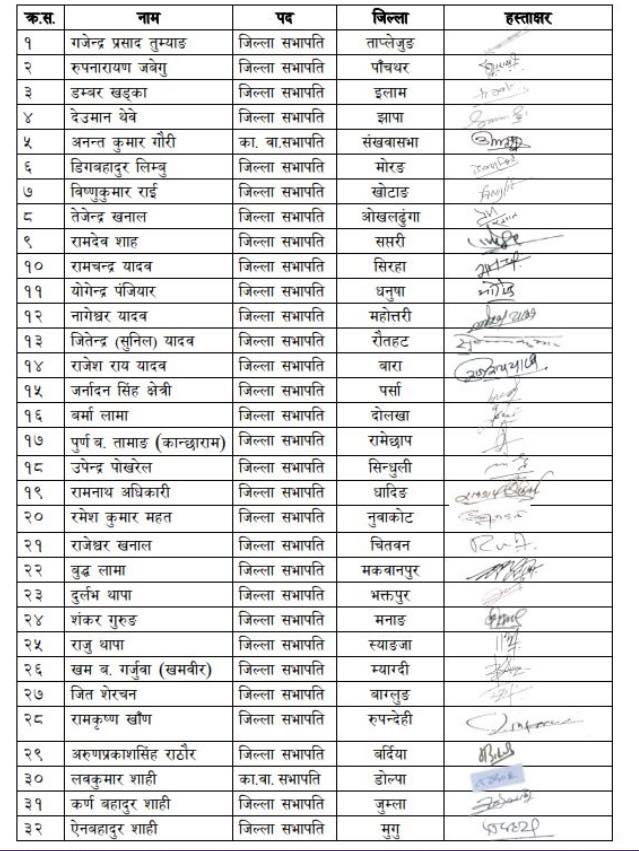 क्र.स. नाम पद जिल्ला हस्ताक्षर
१ गजेन्द्र प्रसाद तुम्याङ जिल्ला सभापति ताप्लेजुङ
२ रुपनारायण जबेगु जिल्ला सभापति पाँचथर
३ डम्बर खड्का जिल्ला सभापति इलाम
४ देउमान थेवे जिल्ला सभापति झापा
५ अनन्त कुमार गौरी का. वा.सभापति संखवासभा
६ डिगबहादुर लिम्बु जिल्ला सभापति मोरङ
७ विष्णुकुमार राई जिल्ला सभापति खोटाङ
८ तेजेन्द्र खनाल जिल्ला सभापति ओखलढुंगा
९ रामदेव शाह जिल्ला सभापति सप्तरी
१० रामचन्द्र यादव जिल्ला सभापति सिरहा
११ योगेन्द्र पंजियार जिल्ला सभापति धनुषा
१२ नागेश्वर यादव जिल्ला सभापति महोत्तरी
१३ जितेन्द्र (सुनिल) यादव जिल्ला सभापति रौतहट
१४ राजेश राय यादव जिल्ला सभापति बारा
१५ जर्नादन सिंह क्षेत्री जिल्ला सभापति पर्सा
१६ बर्मा लामा जिल्ला सभापति दोलखा
१७ पुर्ण ब. तामाङ (कान्छाराम) जिल्ला सभापति रामेछाप
१८ उपेन्द्र पोखरेल जिल्ला सभापति सिन्धुली
१९ रामनाथ अधिकारी जिल्ला सभापति धादिङ
२० रमेश कुमार महत जिल्ला सभापति नुवाकोट
२१ राजेश्वर खनाल जिल्ला सभापति चितवन
२२ बुद्ध लामा जिल्ला सभापति मकवानपुर
२३ दुर्लभ थापा जिल्ला सभापति भक्तपुर
२४ शंकर गुरुङ जिल्ला सभापति मनाङ
२५ राजु थापा जिल्ला सभापति स्याङजा
२६ खम ब. गर्जुवा (खमवीर) जिल्ला सभापति म्याग्दी
२७ जित शेरचन जिल्ला सभापति बाग्लुङ
२८ रामकृष्ण खाँण जिल्ला सभापति रुपन्देही
२९ अरुणप्रकाशसिंह राठौर जिल्ला सभापति बर्दिया
३० लवकुमार शाही का.वा. सभापति डोल्पा
३१ कर्ण बहादुर शाही जिल्ला सभापति जुम्ला
३२ ऐनबहादुर शाही जिल्ला सभापति मुगु